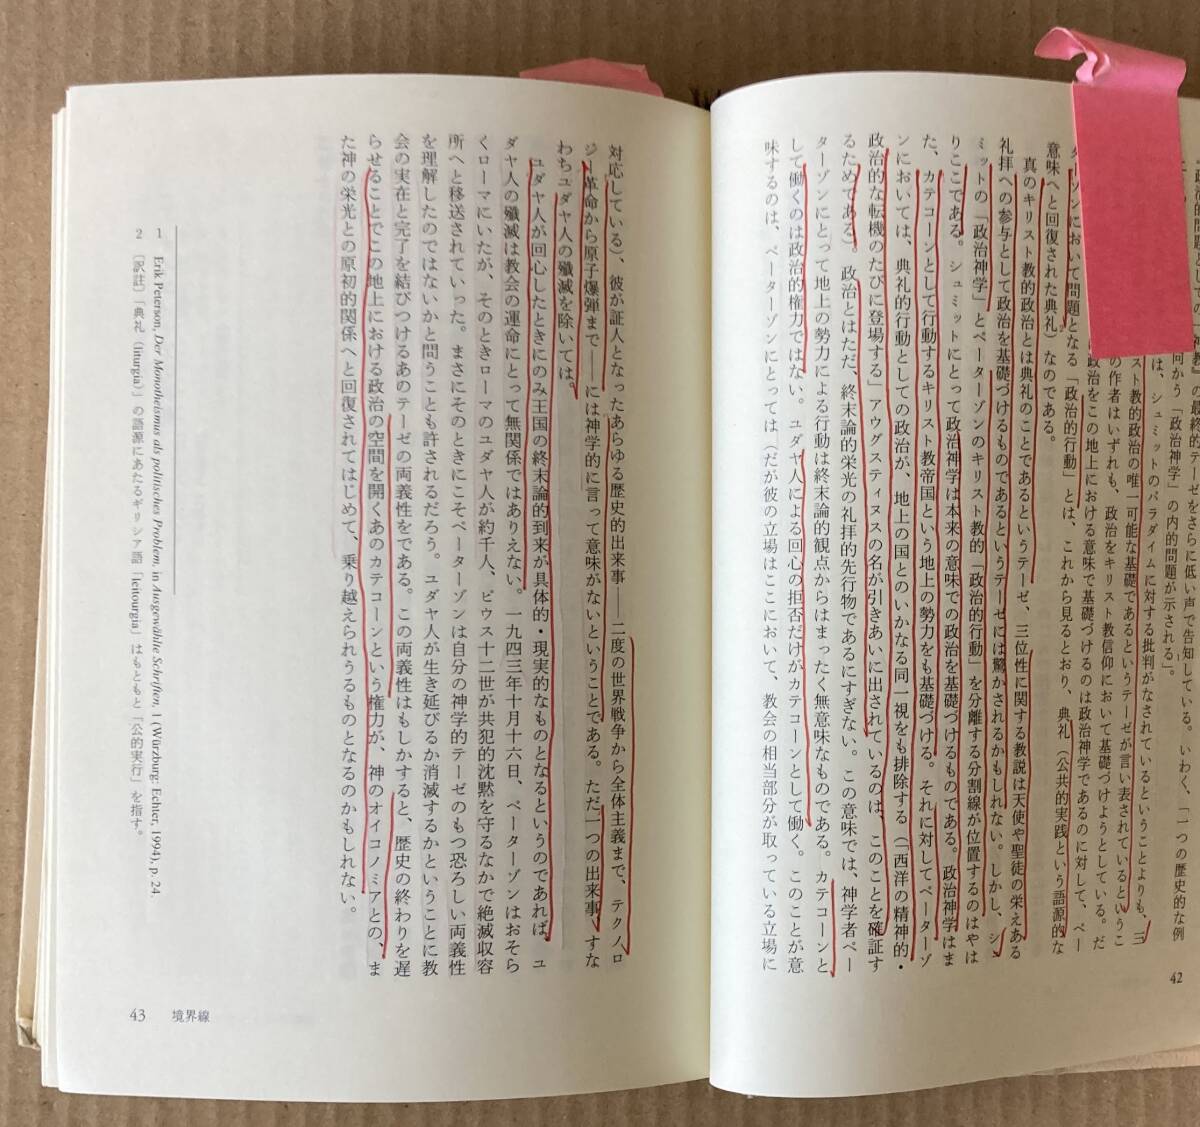 政治的問題としての一神教』の最終的テーゼをさらに低い声で告知している。いわく、「一つの歴史的な例
向から「政治神学」の内的問題が示される」。
は、シュミットのパラダイムに対する批判がなされているということよりも、三
スト教的政治の唯一可能な基礎であるというテーゼが言い表されているというこ
の作者はいずれも、政治をキリスト教信仰において基礎づけようとしている。だ
政治をこの地上における意味で基礎づけるのは政治神学であるのに対して、ペー
ターゾンにおいて問題となる「政治的行動」とは、これから見るとおり、典礼（公共的実践という語源的な
意味へと回復された典礼）なのである。
真のキリスト教的政治とは典礼のことであるというテーゼ、三位性に関する教説は天使や聖徒の栄えある
礼拝への参与として政治を基礎づけるものであるというテーゼには驚かされるかもしれない。しかし、シュ
ミットの「政治神学」とペーターゾンのキリスト教的「政治的行動」を分離する分割線が位置するのはやは
りここである。シュミットにとって政治神学は本来の意味での政治を基礎づけるものである。政治神学はま
た、カテコーンとして行動するキリスト教帝国という地上の勢力をも基礎づける。それに対してペーターゾ
ンにおいては、典礼的行動としての政治が、地上の国とのいかなる同一視をも排除する（「西洋の精神的・
政治的な転機のたびに登場する」アウグスティヌスの名が引きあいに出されているのは、このことを確証す
るためである）。政治とはただ、終末論的栄光の礼拝的先行物であるにすぎない。この意味では、神学者ペー
ターゾンにとって地上の勢力による行動は終末論的観点からはまったく無意味なものである。カテコーンと
して働くのは政治的権力ではない。ユダヤ人による回心の拒否だけがカテコーンとして働く。このことが意
味するのは、ペーターゾンにとっては（だが彼の立場はここにおいて、教会の相当部分が取っている立場に
42
対応している）、彼が証人となったあらゆる歴史的出来事――二度の世界戦争から全体主義まで、テクノロ
ジー革命から原子爆弾まで――には神学的に言って意味がないということである。ただ一つの出来事、すな
わちユダヤ人の殲滅を除いては。
ユダヤ人が回心したときにのみ王国の終末論的到来が具体的・現実的なものとなるというのであれば、ユ
ダヤ人の殲滅は教会の運命にとって無関係ではありえない。一九四三年十月十六日、ペーターゾンはおそら
くローマにいたが、そのときローマのユダヤ人が約千人、ピウス十二世が共犯的沈黙を守るなかで絶滅収容
所へと移送されていった。まさにそのときにこそペーターゾンは自分の神学的テーゼのもつ恐ろしい両義性
を理解したのではないかと問うことも許されるだろう。ユダヤ人が生き延びるか消滅するかということに教
会の実在と完了を結びつけるあのテーゼの両義性をである。この両義性はもしかすると、歴史の終わりを遅
らせることでこの地上における政治の空間を開くあのカテコーンという権力が、神のオイコノミアとの、ま
た神の栄光との原初的関係へと回復されてはじめて、乗り越えられうるものとなるのかもしれない。
1 Erik Peterson, Der Monotheismus als politisches Problem, in Ausgewählte Schriften, 1 (Würzburg: Echter, 1994), p. 24.
2 〔訳註〕「典礼（liturgia）」の語源にあたるギリシア語「leitourgia」はもともと「公的実行」を指す。
43 境界線